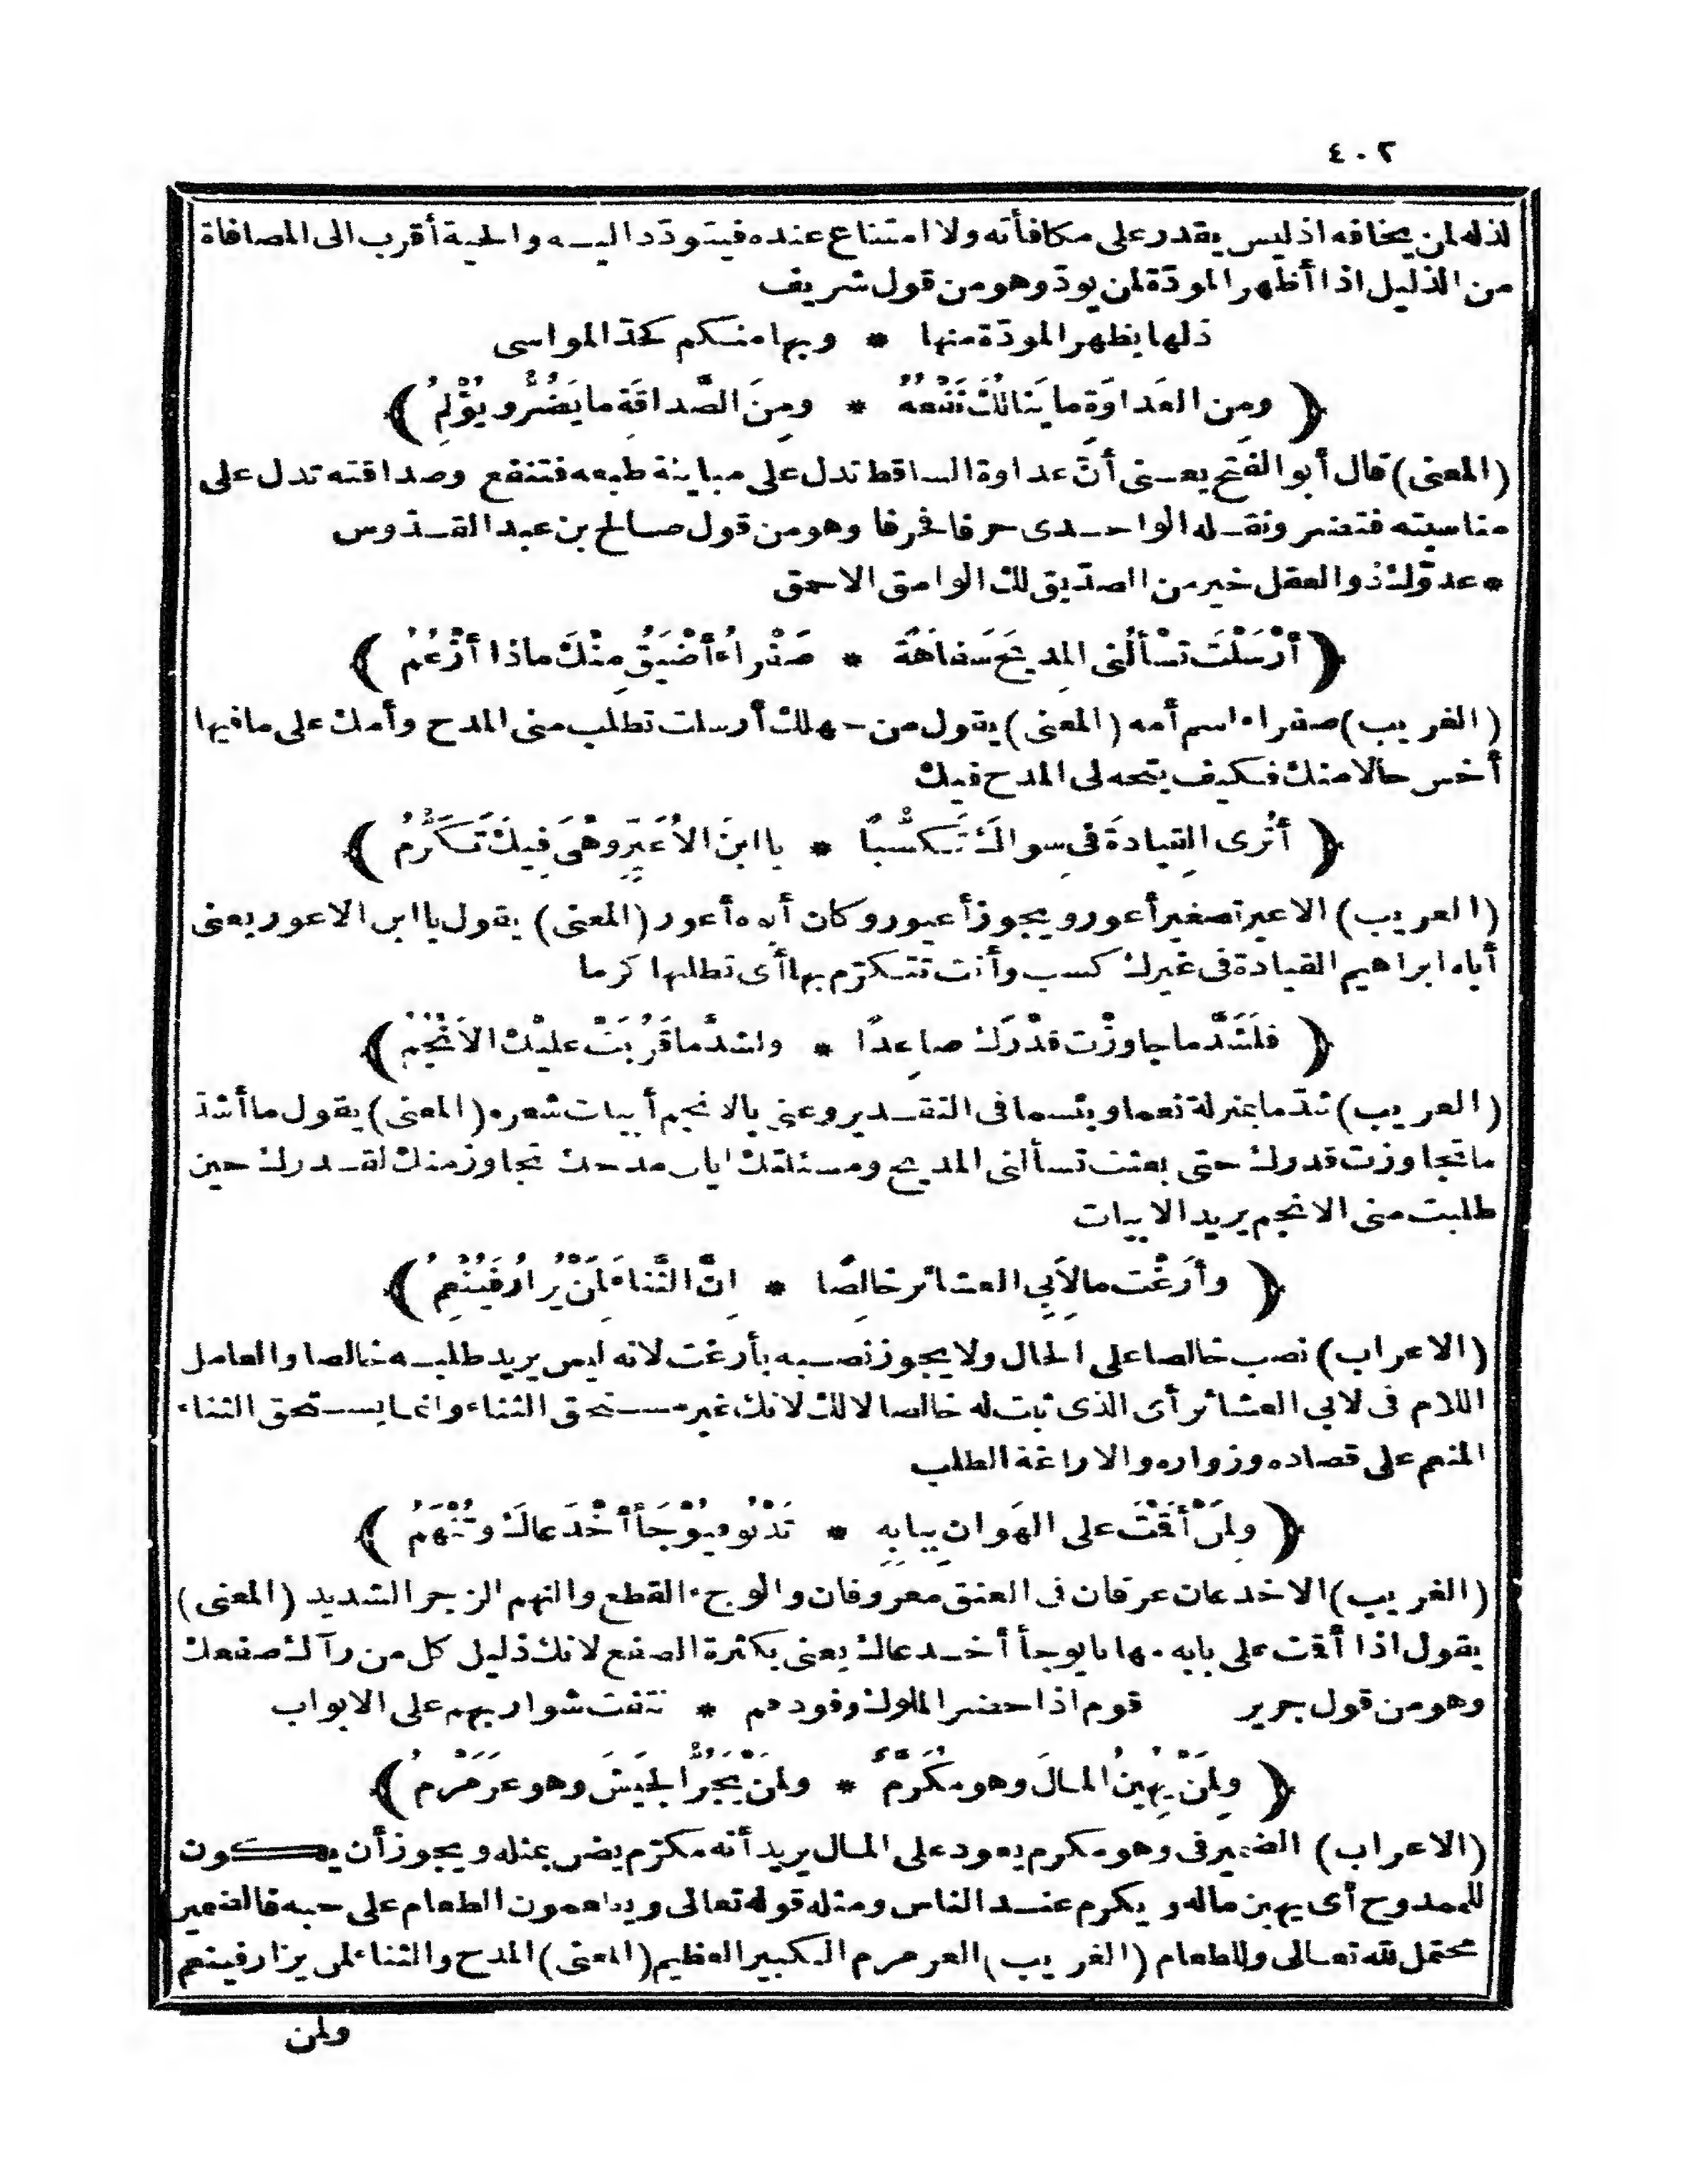 ٤٠٢
لذله لمن يخافه اذ ليس يقدر على مكافأته ولا امتناع عنده فيتودّد اليه والحية أقرب الى المصافاة
من الذليل اذا أظهر المودّة لمن يودّ وهو من قول شريف
ذلها يظهر المودّة منها * وبها منكم كحدّ المواسى
﴿ ومِن العَداوَةِ ما يَنالُكَ نَفْعُهُ * ومِنَ الصَّداقَةِ ما يَضُرُّ ويُؤْلِمُ ﴾
(المعنى) قال أبو الفتح يعنى أنّ عداوة الساقط تدل على مباينة طبعه فتنفع وصداقته تدل على
مناسبته فتضر ونقله الواحدى حرفا فحرفا وهو من قول صالح بن عبد القدّوس
* عدوّك ذو العقل خير من الصدّيق لك الوامق الاحمق
﴿ أرْسَلْتَ تسْألُنى المِديحَ سَفاهَةً * صَفْراءُ أضْيَقُ مِنْكَ ماذا أزْعُمُ ﴾
(الغريب) صفراء اسم أمه (المعنى) يقول من جهلك أرسلت تطلب منى المدح وأمك على ما فيها
أخس حالا منك فكيف يتجه لى المدح فيك
﴿ أتُرى القِيادةَ فى سِواكَ تَكَسُّبًا * يا ابنَ الأُعَيِّرِ وهْىَ فِيكَ تَكَرُّمُ ﴾
(الغريب) الاعير تصغير أعور ويجوز أعيور وكان أبوه أعور (المعنى) يقول يا ابن الاعور يعنى
أباه ابراهيم القيادة فى غيرك كسب وأنت تتكرّم بها أى تطلبها كرما
﴿ فلَشَدَّ ما جاوزْت قدْرَك صاعِدًا * ولشدّ ما قَرُبَتْ عليْك الاَنْجُمُ ﴾
(الغريب) شدّ ما بمنزلة نعما وبئسما فى التقدير وعنى بالانجم أبيات شعره (المعنى) يقول ما أشدّ
ما تجاوزت قدرك حتى بعثت تسألنى المديح ومسئلتك اياى مدحك تجاوز منك لقدرك حين
طلبت منى الانجم يريد الابيات
﴿ وأرَغْت مالِأَبِى العشائر خالِصًا * اِنَّ الثَّناءَ لِمَنْ يُرارُ فَيُنْعِمُ ﴾
(الاعراب) نصب خالصا على الحال ولا يجوز نصبه بأرغت لانه ليس يريد طلبه خالصا والعامل
اللام فى لابى العشائر أى الذى ثبت له خالصا لا لك لانك غير مستحق الثناء وانما يستحق الثناء
المنعم على قصاده وزواره والاراغة الطلب
﴿ ولِمَنْ أقَمْتَ على الهَوانِ بِبابِهِ * تَدْنُو فيُوْجَأ أخْدَعاكَ وتُنْهَمُ ﴾
(الغريب) الاخدعان عرقان فى العنق معروفان والوجء القطع والنهم الزجر الشديد (المعنى)
يقول اذا أقمت على بابه مهانا يوجأ أخدعاك يعنى بكثرة الصفع لانك ذليل كل من رآك صفعك
وهو من قول جرير قوم اذا حضر الملوك وفودهم * نتفت شواربهم على الابواب
﴿ ولِمَنْ يُهِينُ المالَ وهو مُكَرَّمٌ * ولمن يَجُرُّ الجَيشَ وهو عرَمْرمُ ﴾
(الاعراب) الضمير فى وهو مكرم يعود على المال يريد أنه مكرّم يضن بمثله ويجوز أن يكون
للممدوح أى يهين ماله ويكرم عند الناس ومثله قوله تعالى ويطعمون الطعام على حبه فالضمير
محتمل لله تعالى وللطعام (الغريب) العرمرم الكبير العظيم (المعنى) المدح والثناء لمن يزار فينعم
ولمن